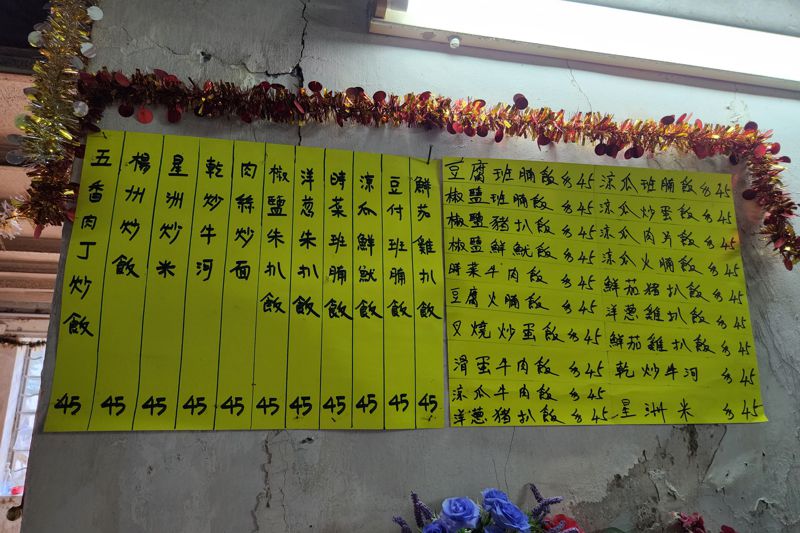 五香肉丁炒飯 45
楊州炒飯 45
星洲炒米 45
乾炒牛河 45
肉絲炒面 45
椒鹽朱扒飯 45
洋葱朱扒飯 45
時菜班腩飯 45
涼瓜鮮魷飯 45
豆付班腩飯 45
鮮茄雞扒飯 45
豆腐班腩飯 $45 涼瓜班腩飯 $45
椒鹽班腩飯 $45 涼瓜炒蛋飯 $45
椒鹽猪扒飯 $45 涼瓜肉片飯 $45
椒鹽鮮魷飯 $45 涼瓜火腩飯 $45
時菜牛肉飯 $45 鮮茄猪扒飯 $45
豆腐火腩飯 $45 洋葱雞扒飯 $45
叉燒炒蛋飯 $45 鮮茄雞扒飯 $45
滑蛋牛肉飯 $45 乾炒牛河 $45
涼瓜牛肉飯 $45
洋葱猪扒飯 $45 星洲米 $45